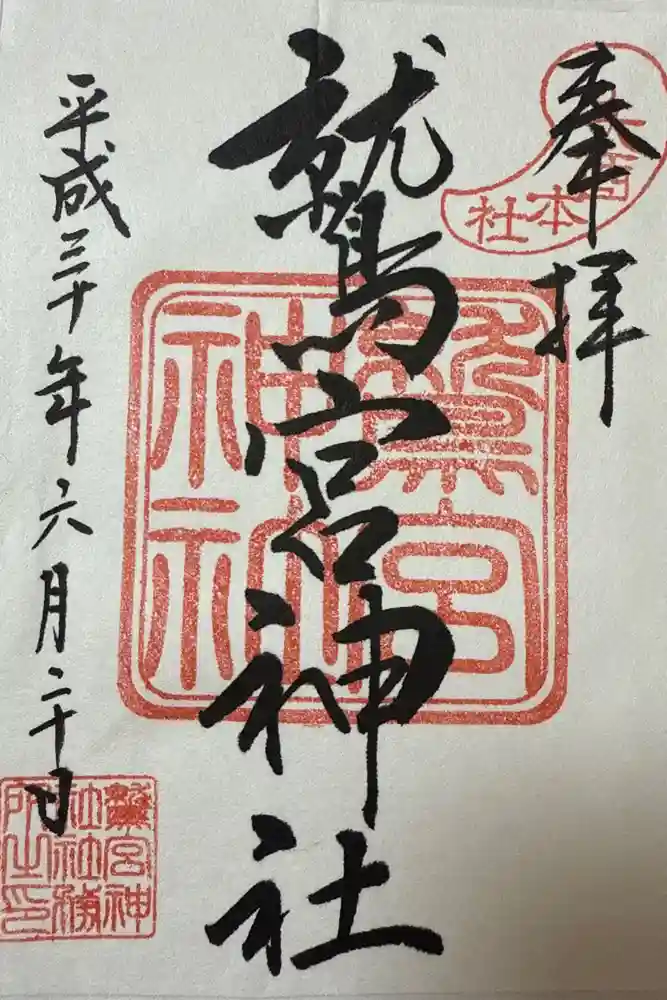 奉拝
鷲宮神社
平成三十年六月二十日
本社
鷲宮神社
鷲宮神社社務所之印